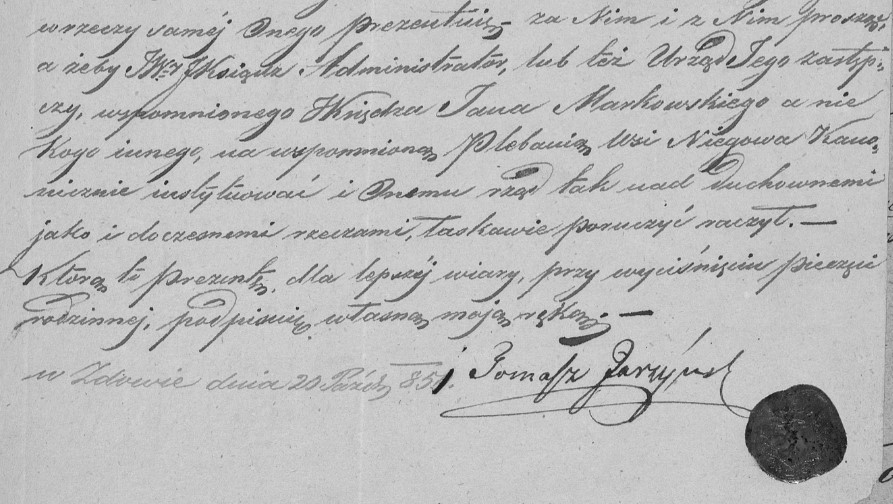 w rzeczy saméj Onego prezentuię – za Nim i z Nim proszę,
a żeby JWny JXsiądz Administrator, lub też Urząd Jego zastęp,
czy, wspomnionego JXiędza Jana Markowskiego a nie
Kogo innego, na wspomnioną Plebanią Wsi Niegowa Kano,
nicznie instytuować i Onemu rząd tak nad duchownemi
jako i doczesnemi rzeczami, łaskawie poruczyć raczył. —
Którą to Prezentę, dla lepszéj wiary, przy wyciśnięciu pieczęci
rodzinnej, podpisuię własną moją ręką. —
w Zdowie dnia 20 Paźdz 851.
Tomasz